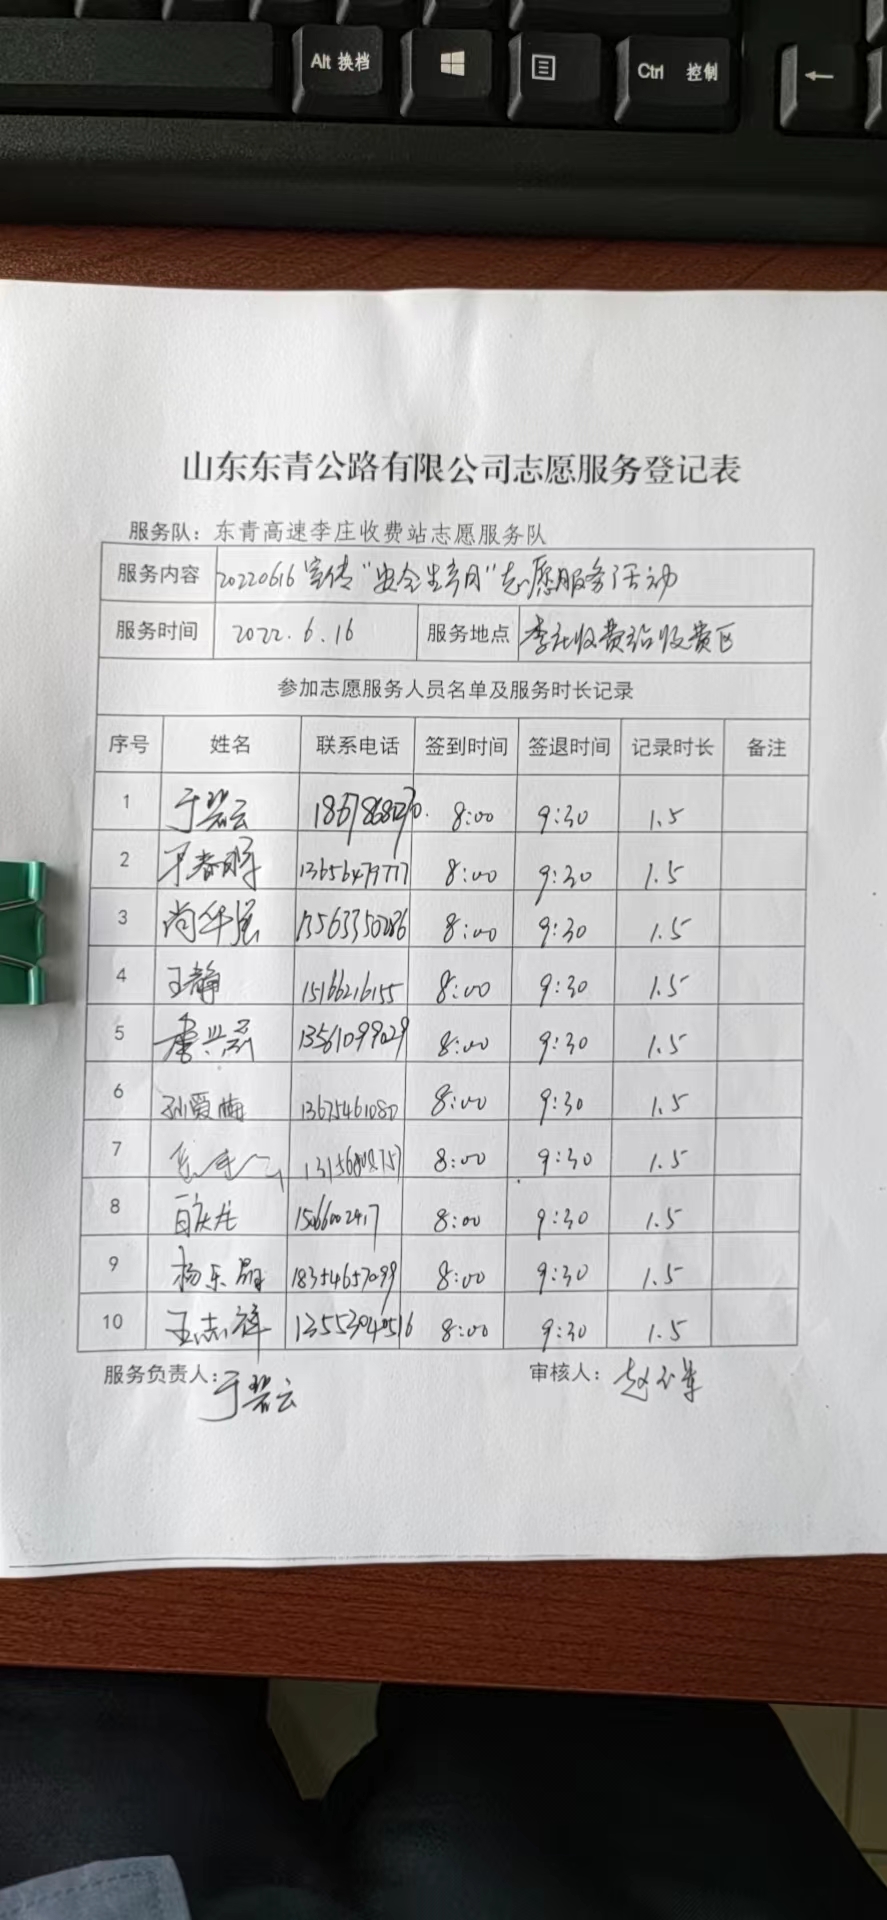 Alt 换档
Ctrl 控制
←
山东东青公路有限公司志愿服务登记表
服务队：东青高速李庄收费站志愿服务队
服务内容 20220616宣传“安全生产月”志愿服务活动
服务时间 2022.6.16 服务地点 李庄收费站收费区
参加志愿服务人员名单及服务时长记录
序号 姓名 联系电话 签到时间 签退时间 记录时长 备注
1 于碧云 8:00 9:30 1.5
2 13656479777 8:00 9:30 1.5
3 尚华强 13563350286 8:00 9:30 1.5
4 王静 15166216155 8:00 9:30 1.5
5 13561099029 8:00 9:30 1.5
6 孙爱梅 13675461080 8:00 9:30 1.5
7 8:00 9:30 1.5
8 8:00 9:30 1.5
9 杨乐 18354657099 8:00 9:30 1.5
10 王志祥 8:00 9:30 1.5
服务负责人：于碧云 审核人：赵